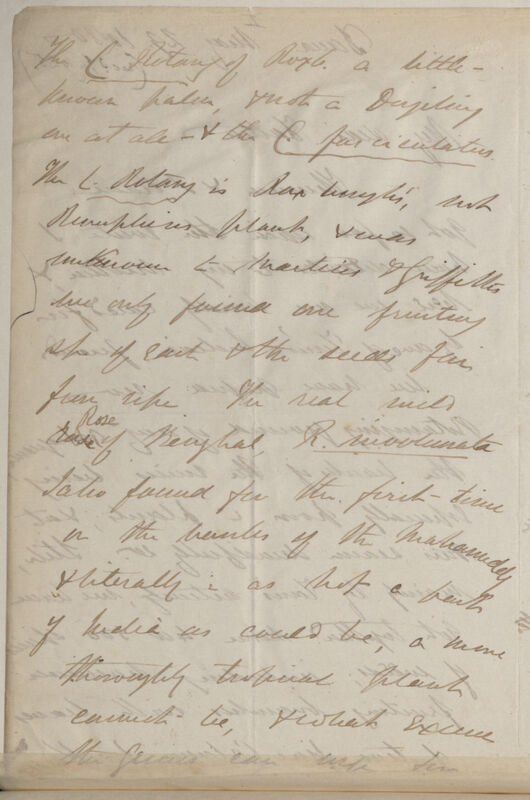 The C. Rotang of Roxb. a little-
known palm, & not a Dorjiling
one at all - & the C. fasciculatus.
The C. Rotang is Roxburgh's, not
Rumphius plant, & was
unknown to Martius & Griffith
we only found one fruiting
sp. of each & the seeds far
from ripe The real wild
Rose
of Benghal, R. involucrata
I also found for the first time
on the banks of the Mahanuddy
& literally in as hot a part
of India as could be, a more
thoroughly tropical plant
cannot be, & what excuse
the genus can